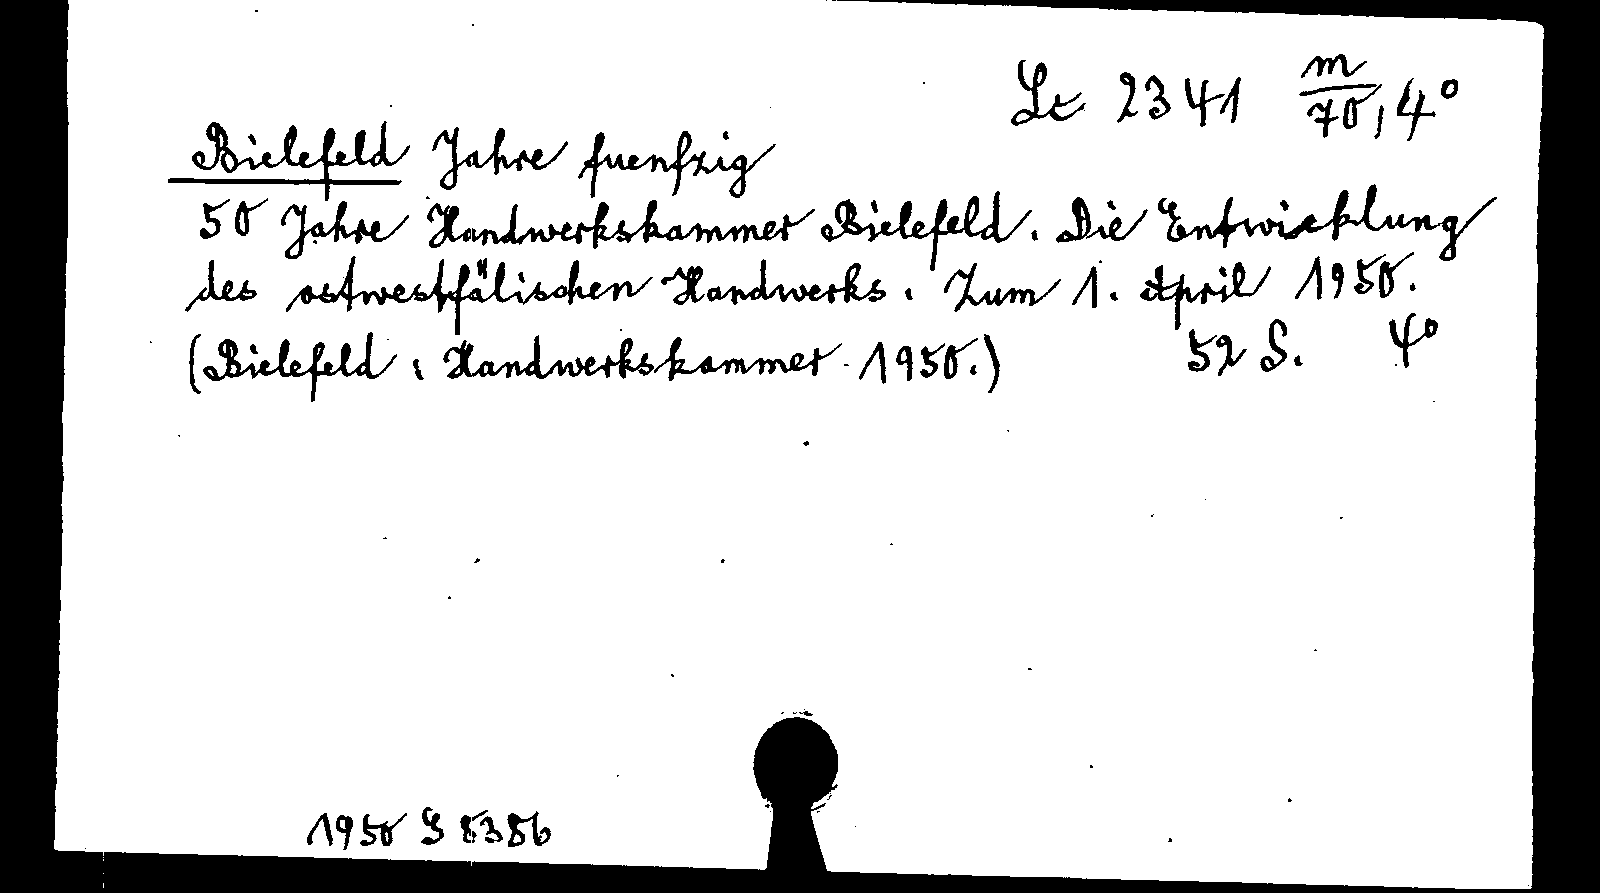 Lt 2341 m/70, 4°
Bielefeld Jahre fuenfzig
50 Jahre Handwerkskammer Bielefeld. Die Entwicklung
des ostwestfälischen Handwerks. Zum 1. April 1950.
(Bielefeld: Handwerkskammer 1950.) 52 S. 4°
1950 G 8386